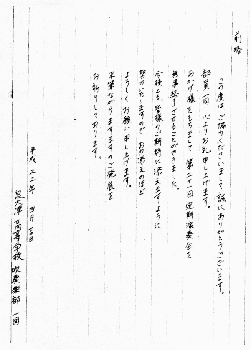 前略
この度はご協力くださいまして誠にありがとうございます。
部員一同 心よりお礼申し上げます。
おかげ様をもちまして 第二十一回 定期演奏会を
無事終了させることができました。
今後も皆様のご期待に添えますように
努力いたしますので お力添えのほど
よろしくお願い申し上げます。
末筆ながらますますのご発展を
お祈りしております。
平成二二年 月 吉日
泉大津高等学校 吹奏楽部 一同